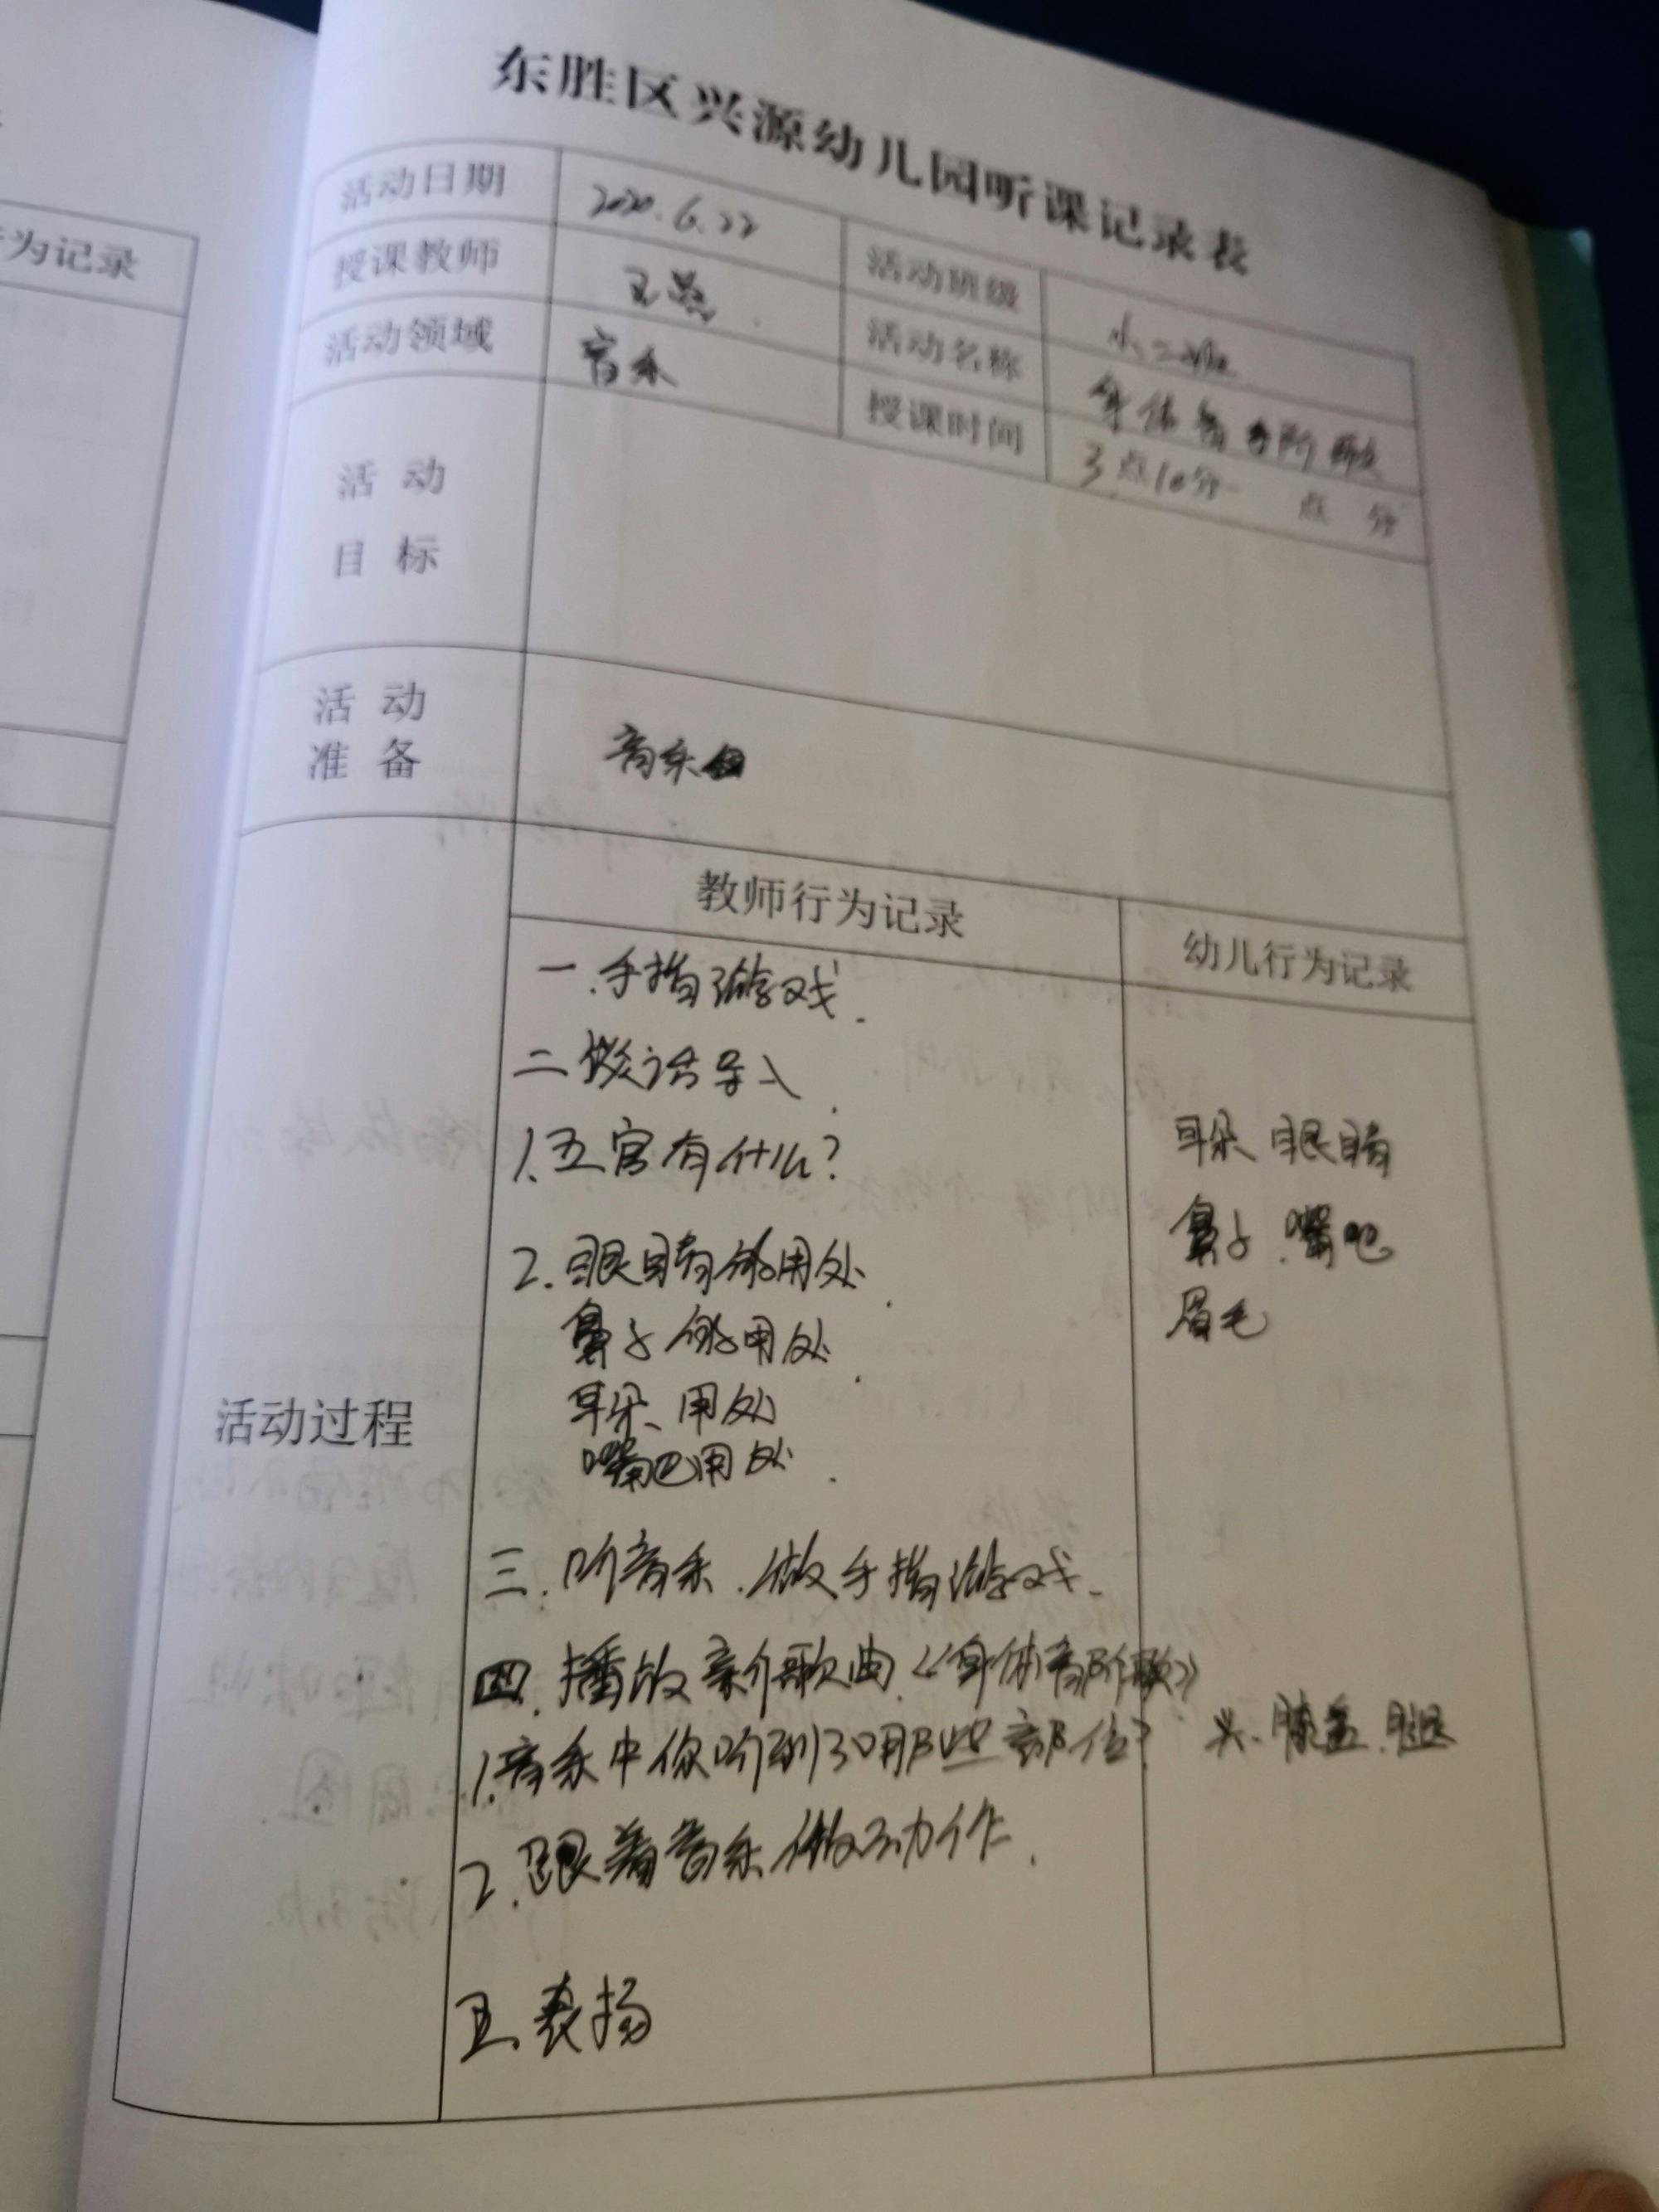 为记录
东胜区兴源幼儿园听课记录表
活动日期 2020.6.22 活动班级 小二班
授课教师 王 活动名称 身体音阶歌
活动领域 音乐 授课时间 3点10分- 点 分
活动
目标
活动
准备 音乐
教师行为记录 幼儿行为记录
活动过程
一.手指游戏.
二谈话导入.
1.五官有什么? 耳朵、眼睛
鼻子.嘴巴
2.眼睛的用处.
眉毛
鼻子的用处.
耳朵、用处
嘴巴用处.
三.听音乐.做手指游戏.
四.播放新歌曲.《身体音阶歌》
1.音乐中你听到了哪些部位? 头、膝盖.腿
2.跟着音乐做动作.
五.表扬